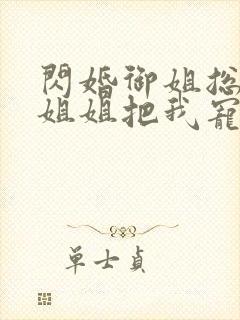 閃婚御姐総
姐姐把我寵
单士貞